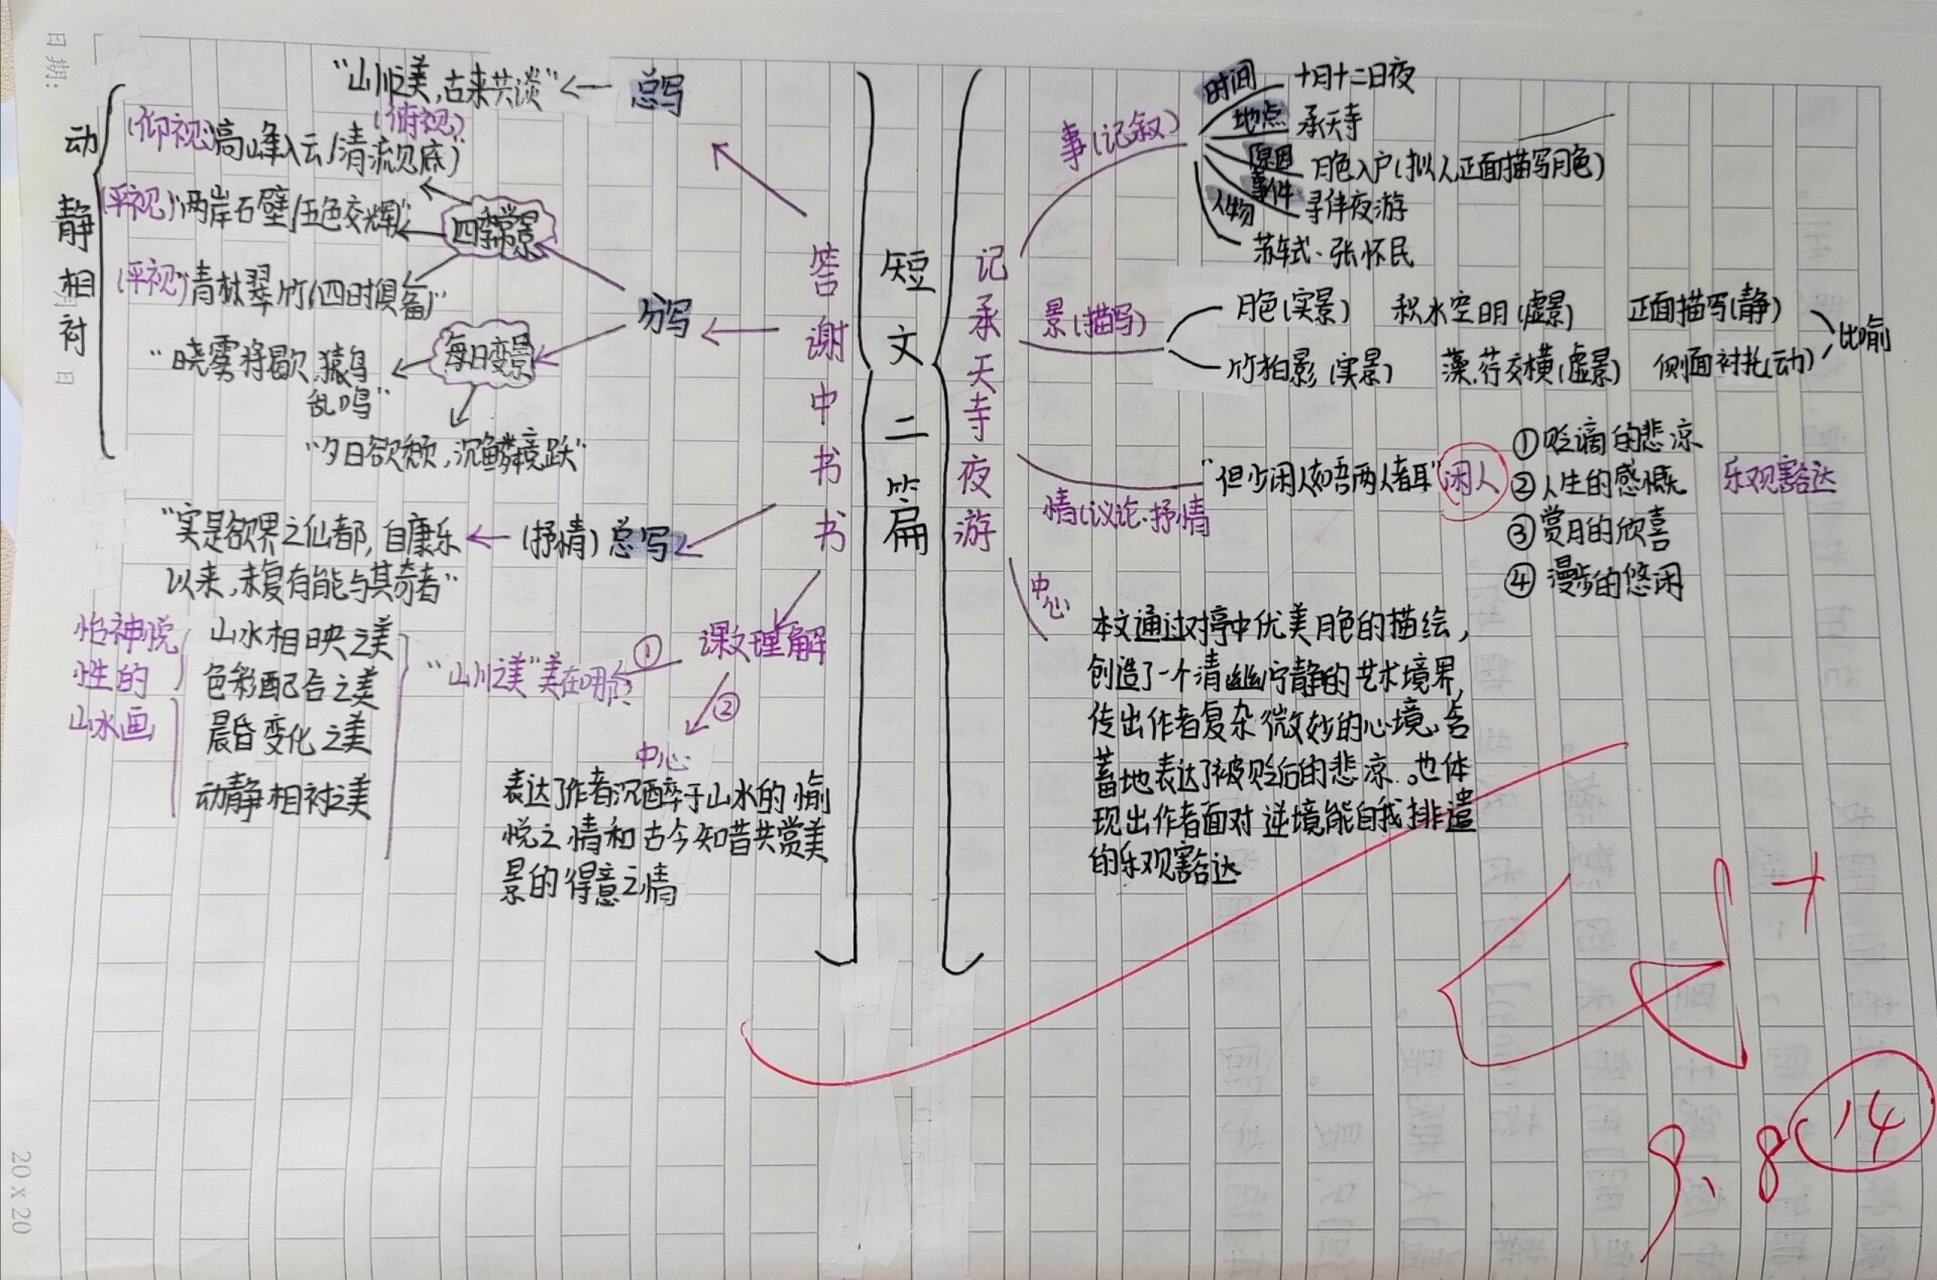 日期:
月 日
短文二篇
答谢中书书
总写
"山川之美,古来共谈"
分写
四季常景
(仰视)"高峰入云/清流见底"
(俯视)
(平视)"两岸石壁/五色交辉"
(平视)"青林翠竹/四时俱备"
每日变景
"晓雾将歇,猿鸟
乱鸣"
"夕日欲颓,沉鳞竞跃"
动静相衬
(抒情)总写
"实是欲界之仙都,自康乐
以来,未复有能与其奇者"
课文理解
①
"山川之美"美在哪
山水相映之美
色彩配合之美
晨昏变化之美
动静相衬之美
怡神悦
性的
山水画
②
中心:
表达了作者沉醉于山水的愉
悦之情和古今知音共赏美
景的得意之情
记承天寺夜游
事(记叙)
时间 十月十二日夜
地点 承天寺
原因 月色入户(拟人,正面描写月色)
事件 寻伴夜游
人物 苏轼·张怀民
景(描写)
月色(实景) 积水空明(虚景) 正面描写(静)
竹柏影(实景) 藻、荇交横(虚景) 侧面衬托(动)
比喻
情(议论·抒情)
"但少闲人如吾两人者耳"闲人
①贬谪的悲凉
②人生的感慨
③赏月的欣喜
④漫步的悠闲
乐观豁达
中心
本文通过对亭中优美月色的描绘,
创造了一个清幽宁静的艺术境界,
传出作者复杂微妙的心境,含
蓄地表达了被贬后的悲凉。也体
现出作者面对逆境能自我排遣
的乐观豁达
9、8
14
20 x 20